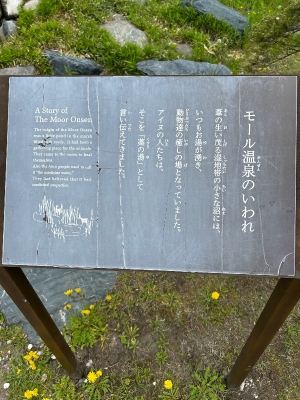 モール温泉のいわれ
葦の生い茂る湿地帯の小さな沼には、
いつもお湯が湧き、
動物達の癒しの場となっていました。
アイヌの人たちは、
そこを「薬の湯」として
言い伝えてきました。
A Story of
The Moor Onsen
The origin of the Moor Onsen
was a little pond in the marsh
with reeds. It had been a
gathering place for the animals.
They came to the moor to heal
themselves.
And the Ainu people used to call
it "the medicine water."
They had believed that it had
medicinal properties.